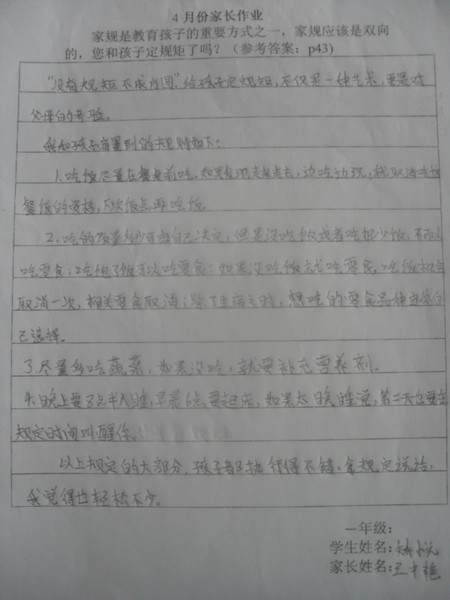 4 月份家长作业
家规是教育孩子的重要方式之一，家规应该是双向
的，您和孩子定规矩了吗？（参考答案：p43）
"没有规矩不成方圆"给孩子定规矩，不仅是一种艺术，更是对
父母的考验。
我和孩子商量到的规则如下：
1.吃饭尽量在餐桌前吃，如果到处走来走去，边吃边玩，就取消吃
餐饭的资格，下次饭点再吃饭。
2.吃的质量多少可由自己决定，但是没吃饭或者吃很少饭，不可以
吃零食；吃饱了饭可以吃零食；如果没吃饭去吃零食，
取消一次，相关零食取消；想吃的零食品种由他自
己选择。
3.尽量多吃蔬菜，如果没吃，就要补充营养剂。
4.晚上要8点半入睡，早晨6点要起床，如果太晚睡觉，第二天也要在
规定时间叫醒你。
以上规定的大部分，孩子都执行得不错，拿规定说话，
我觉得也轻松不少。
一年级：
学生姓名：
家长姓名：